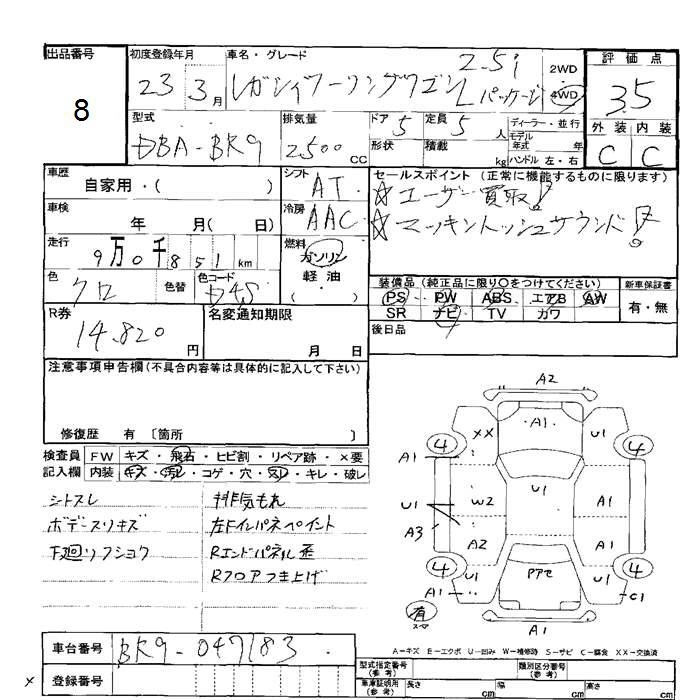 出品番号
8
初度登録年月
23 3月
車名・グレード
レガシィツーリングワゴン 2.5i
Lパッケージ
2WD
4WD
評価点
3.5
外装 内装
C C
型式
DBA-BR9
排気量
2500 CC
ドア 5
定員 5 人
形状
積載 kg
ディーラー・並行
モデル年式 年
ハンドル 左・右
車歴
自家用・( )
シフト AT
車検
年 月( 日)
冷房 AAC
走行
9万0千851 km
燃料
ガソリン
軽油
( )
色 クロ
色替
色コード D4S
セールスポイント (正常に機能するものに限ります)
☆ユーザー買取!
☆マッキントッシュサウンド!
装備品(純正品に限り○をつけてください)
PS PW ABS エアB AW
SR ナビ TV カワ
新車保証書
有・無
後日品
R券
14,820円
名変通知期限
月 日
注意事項申告欄(不具合内容等は具体的に記入して下さい)
修復歴 有 〔箇所 〕
検査員記入欄
FW キズ・飛石・ヒビ割・リペア跡・×要
内装 キズ・汚レ・コゲ・穴・スレ・キレ・破レ
シトスレ
ボデースリキズ
下廻リフショク
排気もれ
左Fインパネペイント
Rエンドパネル歪
Rフロアつき上げ
A2
A1
XX
U1
4
4
A1
U1
W2
U1
A1
A3
A2
A1
4
4
U1
Pアセ
U1
A1
C1
有
スペア
A1
A-キズ E-エクボ U-凹み W-補修跡 S-サビ C-腐食 XX-交換済
車台番号
BR9-047183
×
登録番号
型式指定番号(参考)
類別区分番号(参考)
車庫証明用(参考)
長さ cm
幅 cm
高さ cm